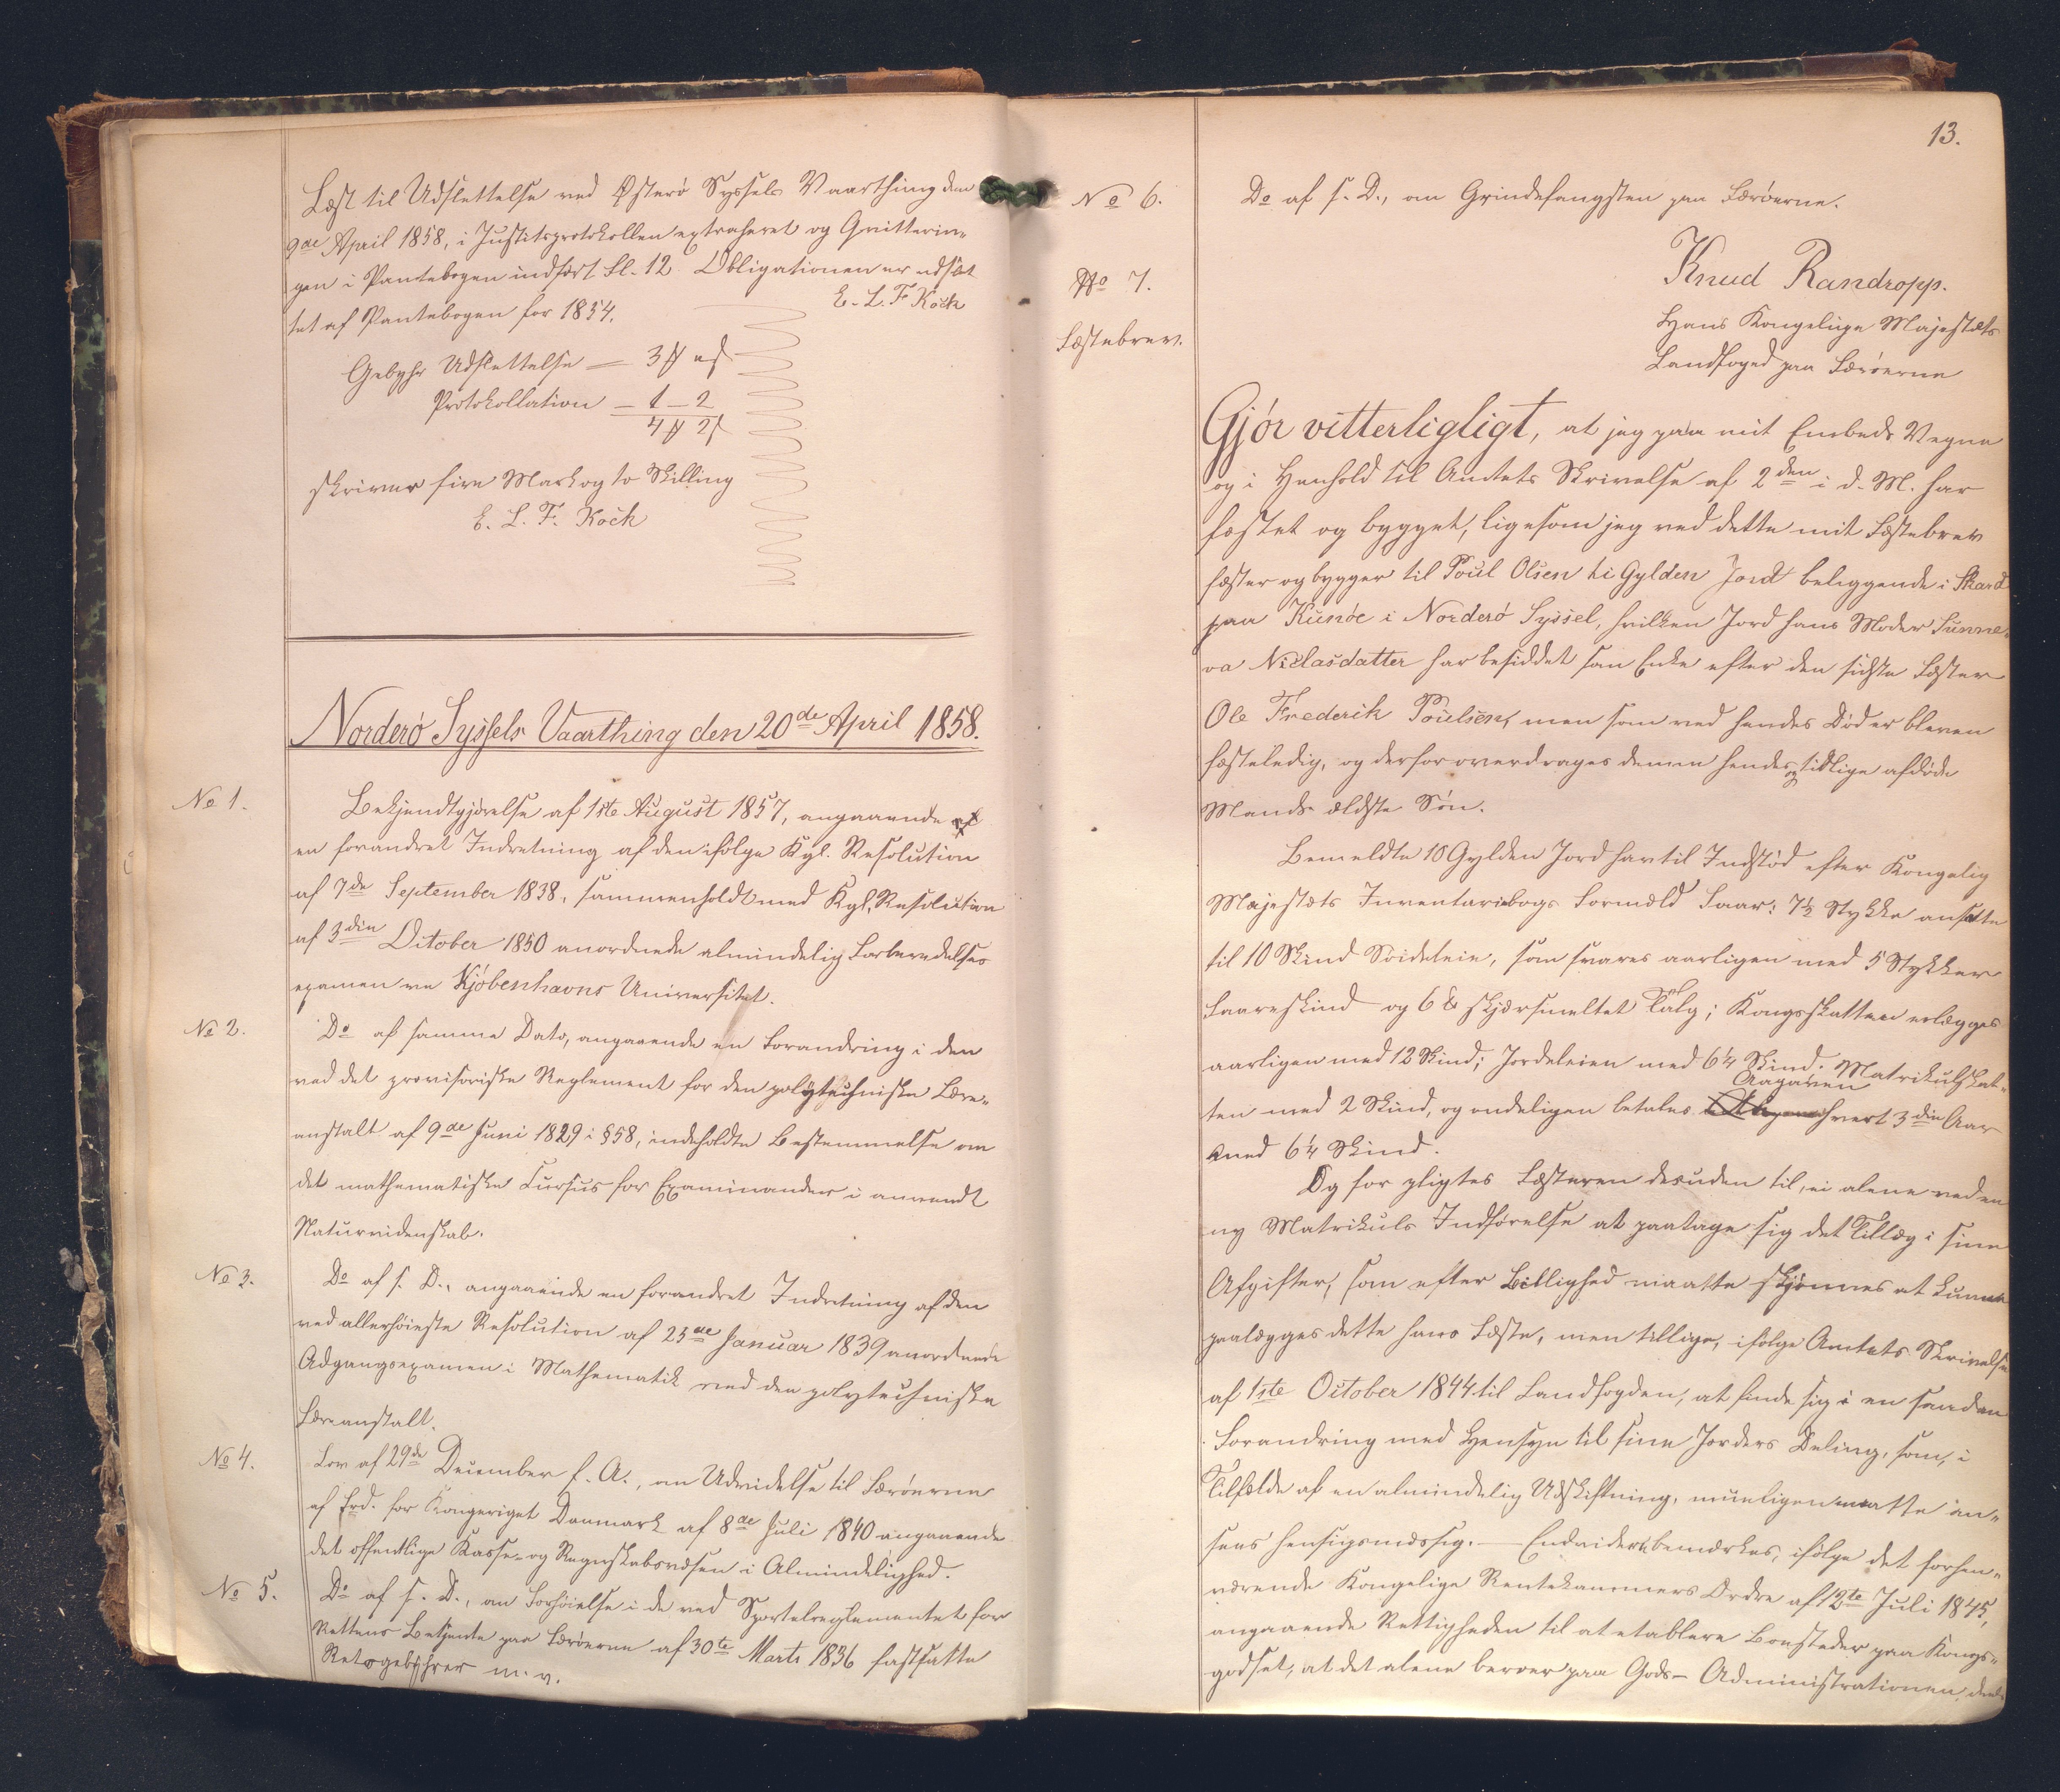 Læst til Udslettelse ved Østerø Syssels Vaarthing den
9de April 1858, i Justitsprotokollen extraheret og Qvitterin-
gen i Pantebogen indført fol. 12 Obligationen er udslet
tet af Pantebogen for 1854.
E. L. F Koch
Gebyhr Udslettelse — 3 # " ß
Protokollation — 1 — 2
4 # 2 ß
skriver fire Mark og to Skilling
E. L. F. Koch
Norderø Syssels Vaarthing den 20de April 1858.
No 1.
Bekjendtgjørelse af 1ste August 1857, angaaende af
en forandret Indretning af den ifølge Kgl. Resolution
af 7de September 1838, sammenholdt med Kgl. Resolution
af 3die October 1850 anordnede almindelig Forberedelses
examen ve Kjøbenhavns Universitet.
No 2.
Do af samme Dato, angaaende en Forandring i den
ved det provisoriske Reglement for den polytechniske Lære-
anstalt af 9de Juni 1829 i § 58, indeholdte Bestemmelse om
det mathematiske Cursus for Examinander i anvendt
Naturvidenskab.
No 3.
Do af s. D., angaaende en forandret Indretning af den
ved allerhøieste Resolution af 25de Januar 1839 anordnede
Adgangsexamen i Mathematik ved den polytechniske
Læreanstalt.
No 4.
Lov af 29de December f. A., om Udvidelse til Færøerne
af Frd. for Kongeriget Danmark af 8de Juli 1840 angaaende
det offentlige Kasse- og Regnskabsvæsen i Almindelighed.
No 5.
Do af s. D., om Forhøielse i de ved Sportelreglementet for
Rettens Betjente paa Færøerne af 30te Marts 1836 fastsatte
Retsgebyhrer m. v.
13.
No 6.
Do af s. D., om Grindefangsten paa Færøerne.
No 7.
Fæstebrev.
Knud Randropp.
Hans Kongelige Majestæts
Landfoged paa Færøerne
Gjør vitterligligt, at jeg paa mit Embeds Vegne
og i Henhold til Amtets Skrivelse af 2den i d. M. har
fæstet og bygget, ligesom jeg ved dette mit Fæstebrev
fæster og bygger til Poul Olsen ti Gylden Jord beliggende i Skard
paa Kunøe i Norderø Syssel, hvilken Jord hans Moder Sunne-
va Niclasdatter har besiddet som Enke efter den sidste Fæster
Ole Frederik Poulsen, men som ved hendes Død er bleven
fæsteledig, og derfor overdrages denne hendes og tidlige afdøde
Mands ældste Søn.
Bemeldte 10 Gylden Jord har til Indstød efter Kongelig
Majestæts Inventariebogs Formeld Faar: 7½ Stykke ansatte
til 10 Skind Søideleie, som svares aarligen med 5 Stykker
Faareskind og 6 ℔ skjærsmeltet Talg; Kongsskatten erlægges
aarligen med 12 Skind; Jordeleien med 6¼ Skind. Matrikulskat-
ten med 2 Skind, og endeligen betales Aagaven hvert 3die Aar
med 6¼ Skind.
Og forpligtes Fæsteren desuden til, ei alene ved en
ny Matrikuls Indførelse at paatage sig det Tillæg i sine
Afgifter, som efter Billighed maatte skjønnes at kunne
paalægges dette hans Fæste, men tillige, ifølge Amtets Skrivelse
af 1ste October 1844 til Landfogden, at finde sig i en saadan
Forandring med Hensyn til sine Jorders Deling, som, i
Tilfælde af en almindelig Udskiftning, mueligen maatte an-
sees hensigtsmæssig. — Endvidere bemærkes, ifølge det forhen-
værende Kongelige Rentekammers Ordre af 12te Juli 1845,
angaaende Rettigheden til at etablere Bosteder paa Kongs-
godset, at det alene beroer paa Gods- Administrationen, deels